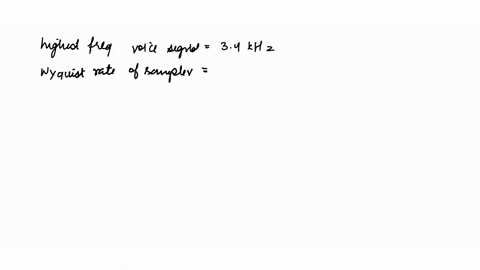 highest freq voice signal = 3.4 kHz
Nyquist rate of sampler =